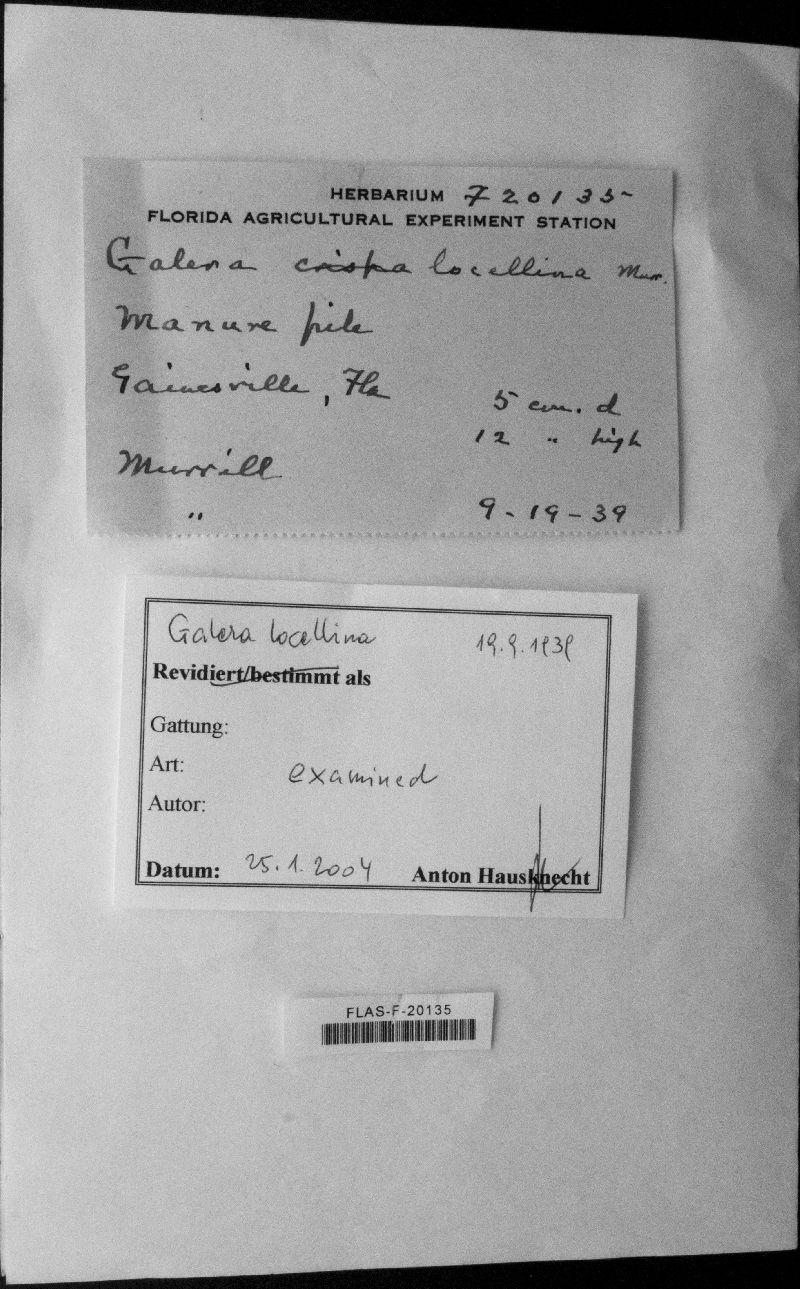 HERBARIUM F20135
FLORIDA AGRICULTURAL EXPERIMENT STATION
Galera crispa locellina Murr.
Manure pile
Gainesville, Fla
5 cm. d
12 " high
Murrill
" 9-19-39
Galera locellina 19.9.1939
Revidiert/bestimmt als
Gattung:
Art:
examined
Autor:
Datum: 25.1.2004 Anton Hausknecht
FLAS-F-20135